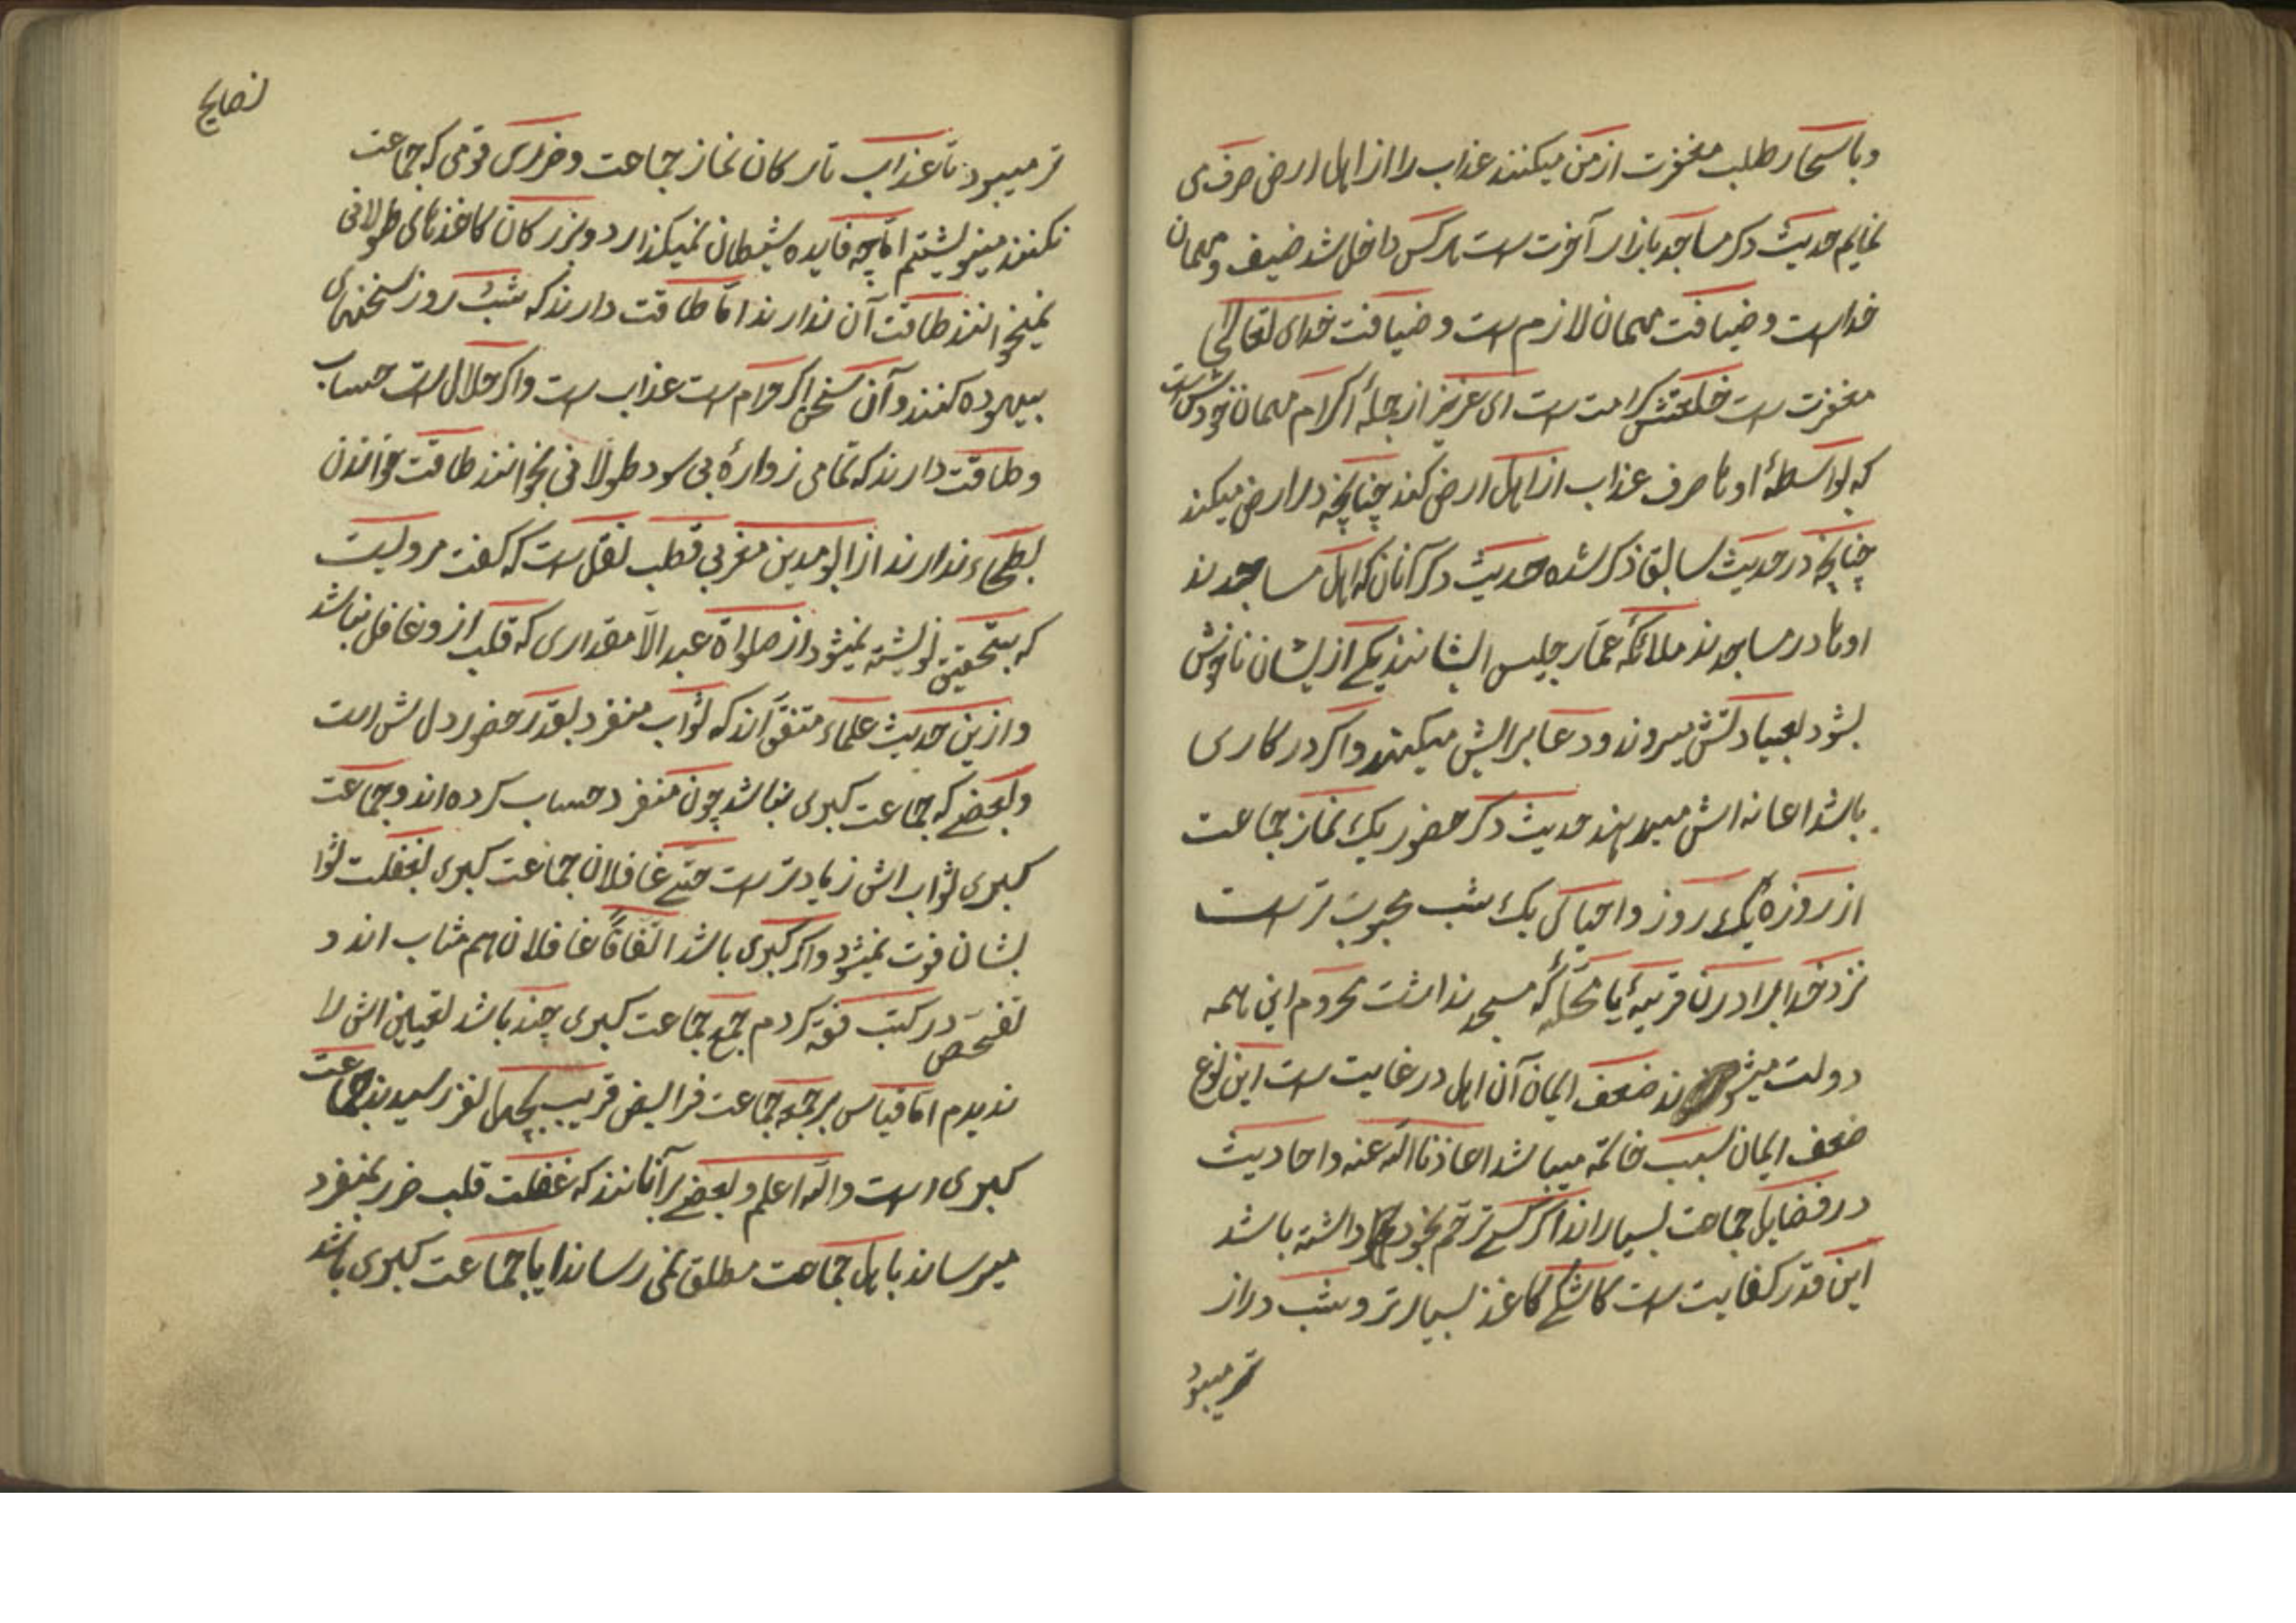 وباسحار طلب مغفرت از من میکنند عذاب را از اهل ارض صرف می
نمایم حدیث دکر مساجد بازار آخرت است هرکس داخل شد ضیف و مهمان
خداست و ضیافت مهمان لازم است و ضیافت خدای تعالی
مغفرت است خلعتش کرامت است ای عزیز از جملهٔ اکرام مهمان خودش است
که بواسطهٔ اوها صرف عذاب از اهل ارض کند چنانچه در ارض میکند
چنانچه در حدیث سابق ذکر شده حدیث دکر آنان که اهل مساجدند
اوها در مساجدند ملائکه عمّار جلیس ایشانند یکی از یشان ناخوش
بشود بعیادتش میروند و دعا برایش میکنند واکر در کاری
باشد اعانه اش میدهند حدیث دکر حضور یک نماز جماعت
از روزهٔ یک روز و احیای یک شب محبوب تر است
نزد خدا برادرن قریهٔ یا محلّهٔ که مسجد نداشت محروم این همه
دولت میشوند ضعف ایمان آن اهل در غایت است این نوع
ضعف ایمان سبب خاتمه میباشد اعاذنا الله عنه و احادیث
در فضایل جماعت بسیارند اکر کسی ترحّم بخود داشته باشد
این قدر کفایت است کاشکی کاغذ بسیارتر و شب دراز
تر میبود
نصایح
تر میبود تا عذاب تارکان نماز جماعت و ضرری قومی که جماعت
نکنند مینوشتم امّا چه فایده شیطان نمیکذارد و بزرکان کاغذهای طولانی
نمیخوانند طاقت آن ندارند امّا طاقت دارند که شب روز سخنهای
بیهوده کنند و آن سخن اکر حرام است عذاب است واکر حلال است حساب
و طاقت دارند که تمامی زوارهٔ بی سود طولانی بخوانند طاقت خواندن
نصایح ندارند از ابو مدین مغربی قطب نقل است که کفت مرویست
که بتحقیق نوشته نمیشود از صلواة عبد الّا مقداری که قلب از و غافل نباشد
و ازین حدیث علماء متفق آند که ثواب منفرد بقدر حضور دل ش است
و بعضی که جماعت کبری نباشد چون منفرد حساب کرده اند و جماعت
کبری ثواب اش زیادتر است حتّی غافلان جماعت کبری بغفلت ثوا
بشان فوت نمیشود واکر کبری باشد اتّفاقاً غافلان هم مثاب اند و
تفحّص در کتب فقه کردم جمع جماعت کبری چند باشد تعیین اش را
ندیدم امّا قیاس بر جمعه جماعت فرایض قریب بچهل نفر رسیدند جماعت
کبری است والله اعلم و بعضی بر آنانند که غفلت قلب ضرر بمنفرد
میرساند باهل جماعت مطلق نمی رساند ایا جماعت کبری باشد